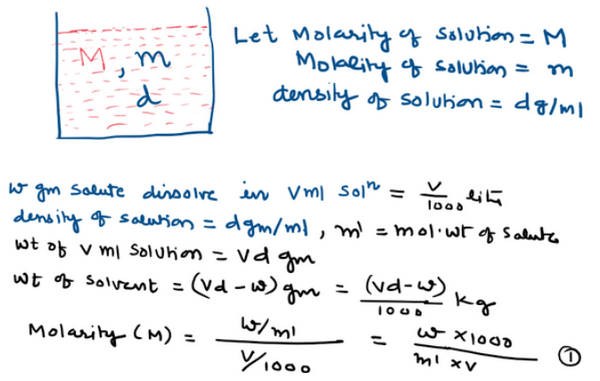 M, m
d
Let Molarity of Solution = M
Molality of Solution = m
density of Solution = d g/ml
w gm Solute dissolve in V ml Solⁿ = V/1000 lit
density of solution = d gm/ml, m' = mol. wt of Solute
wt of V ml Solution = Vd gm
wt of Solvent = (Vd - w) gm = (Vd - w)/1000 Kg
Molarity (M) = (w/m')/(V/1000) = (w × 1000)/(m' × V) ①